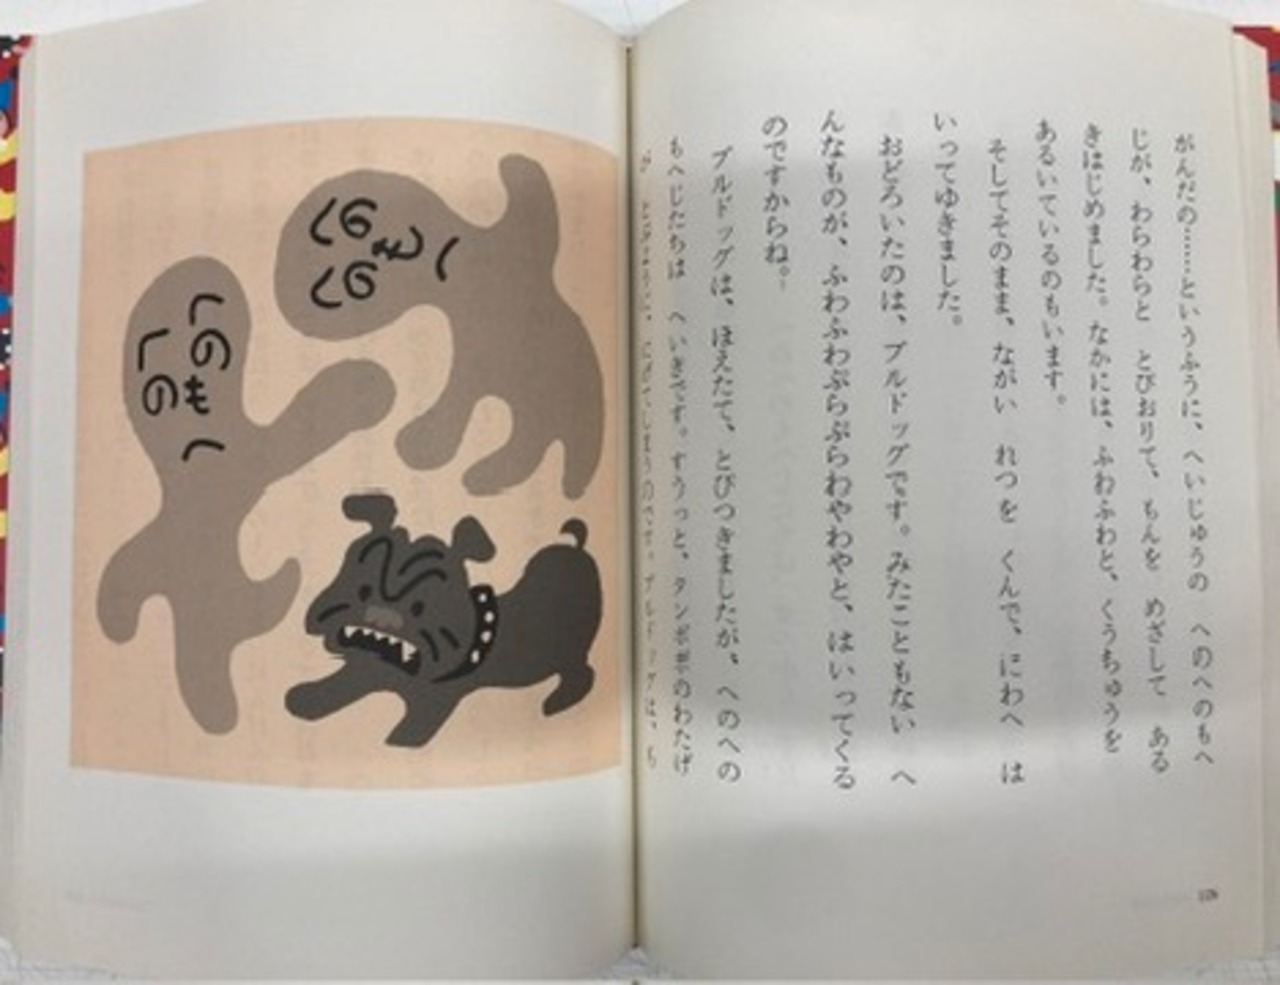 がんだの……というふうに、へいじゅうの　へのへのもへ
じが、わらわらと　とびおりて、もんを　めざして　ある
きはじめました。なかには、ふわふわと、くうちゅうを
あるいているのもいます。
そしてそのまま、ながい　れつを　くんで、にわへ　は
いってゆきました。
おどろいたのは、ブルドッグです。みたこともない　へ
んなものが、ふわふわぷらぷらわやわやと、はいってくる
のですからね。
ブルドッグは、ほえたて、とびつきましたが、へのへの
もへじたちは　へいきです。すうっと、タンポポのわたげ
が　とぶように、にげてしまうのです。ブルドッグは、も
128
へのもへ
への
へのもへ
への